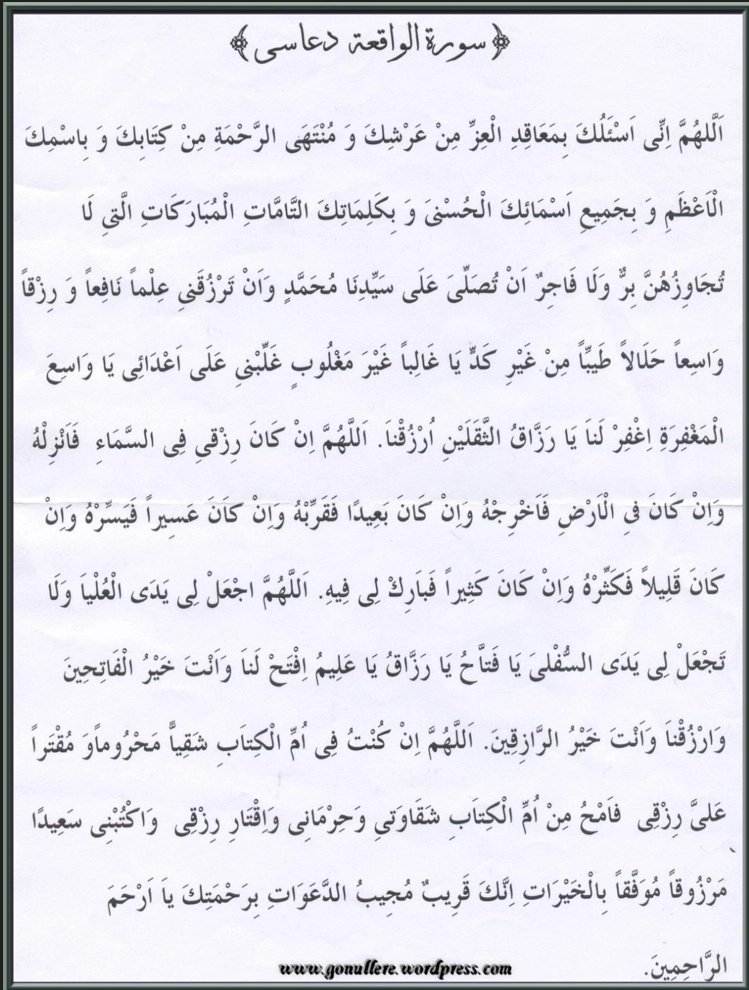 ﴿سورة الواقعة دعاسى﴾
اَللّٰهُمَّ اِنِّى اَسْئَلُكَ بِمَعَاقِدِ الْعِزِّ مِنْ عَرْشِكَ وَ مُنْتَهَى الرَّحْمَةِ مِنْ كِتَابِكَ وَ بِاسْمِكَ
الْاَعْظَمِ وَ بِجَمِيعِ اَسْمَائِكَ الْحُسْنىَ وَ بِكَلِمَاتِكَ التَّامَّاتِ الْمُبَارَكَاتِ الَّتىِ لَا
تُجَاوِزُهُنَّ بِرٌّ وَلَا فَاجِرٌ اَنْ تُصَلِّىَ عَلَى سَيِّدِنَا مُحَمَّدٍ وَاَنْ تَرْزُقَنىِ عِلْماً نَافِعاً وَ رِزْقاً
وَاسِعاً حَلَالاً طَيِّباً مِنْ غَيْرِ كَدٍّ يَا غَالِباً غَيْرَ مَغْلُوبٍ غَلِّبْنىِ عَلَى اَعْدَائِى يَا وَاسِعَ
الْمَغْفِرَةِ اِغْفِرْ لَناَ يَا رَزَّاقُ الثَّقَلَيْنِ اُرْزُقْناَ. اَللَّهُمَّ اِنْ كَانَ رِزْقىِ فِى السَّمَاءِ فَاَنْزِلْهُ
وَاِنْ كَانَ فىِ الْاَرْضِ فَاَخْرِجْهُ وَاِنْ كَانَ بَعِيدًا فَقَرِّبْهُ وَاِنْ كاَنَ عَسِيراً فَيَسِّرْهُ وَاِنْ
كَانَ قَلِيلاً فَكَثِّرْهُ وَاِنْ كَانَ كَثِيراً فَبَارِكْ لِى فِيهِ. اَللَّهُمَّ اجْعَلْ لِى يَدَى الْعُلْياَ وَلَا
تَجْعَلْ لِى يَدَى السُّفْلىَ يَا فَتاَّحُ يَا رَزَّاقُ يَا عَلِيمُ اِفْتَحْ لَناَ وَاَنْتَ خَيْرُ الْفَاتِحِينَ
وَارْزُقْناَ وَاَنْتَ خَيْرُ الرَّازِقِينَ. اَللَّهُمَّ اِنْ كُنْتُ فِى اُمِّ الْكِتاَبِ شَقِياًّ مَحْرُوماًوَ مُقْتَراً
عَلىَّ رِزْقِى فاَمْحُ مِنْ اُمِّ الْكِتاَبِ شَقَاوَتىِ وَحِرْمَانِى وَاِقْتَارِ رِزْقِى وَاكْتُبْنِى سَعِيدًا
مَرْزُوقاً مُوَفَّقاً بِالْخَيْرَاتِ اِنَّكَ قَرِيبٌ مُجِيبُ الدَّعَوَاتِ بِرَحْمَتِكَ ياَ اَرْحَمَ
الرَّاحِمِينَ.
www.gonullere.wordpress.com